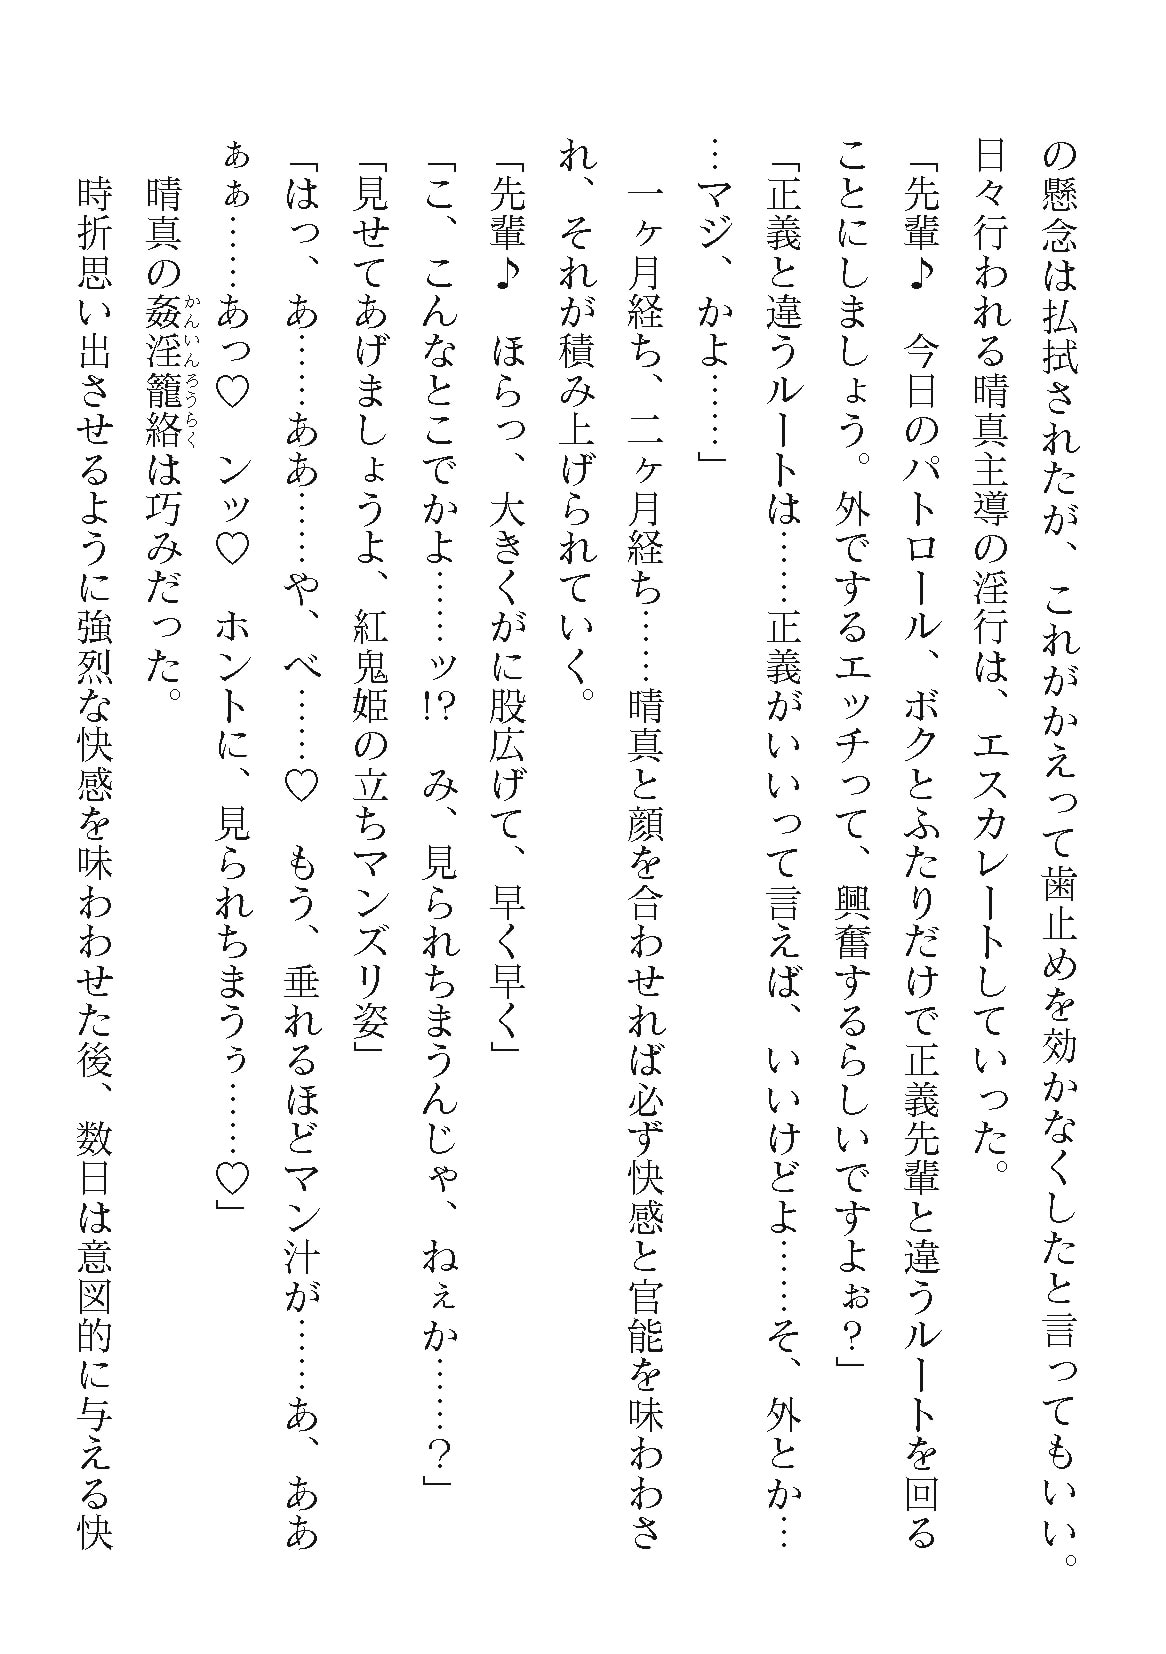 の懸念は払拭されたが、これがかえって歯止めを効かなくしたと言ってもいい。
日々行われる晴真主導の淫行は、エスカレートしていった。
「先輩♪　今日のパトロール、ボクとふたりだけで正義先輩と違うルートを回る
ことにしましょう。外でするエッチって、興奮するらしいですよぉ？」
「正義と違うルートは……正義がいいって言えば、いいけどよ……そ、外とか…
…マジ、かよ……」
　一ヶ月経ち、二ヶ月経ち……晴真と顔を合わせれば必ず快感と官能を味わわさ
れ、それが積み上げられていく。
「先輩♪　ほらっ、大きくがに股広げて、早く早く」
「こ、こんなとこでかよ……ッ!?　み、見られちまうんじゃ、ねぇか……？」
「見せてあげましょうよ、紅鬼姫の立ちマンズリ姿」
「はっ、あ……ああ……や、べ……♡　もう、垂れるほどマン汁が……あ、ああ
ぁぁ……あっ♡　ンッ♡　ホントに、見られちまうぅ……♡」
　晴真の姦淫籠絡かんいんろうらくは巧みだった。
　時折思い出させるように強烈な快感を味わわせた後、数日は意図的に与える快